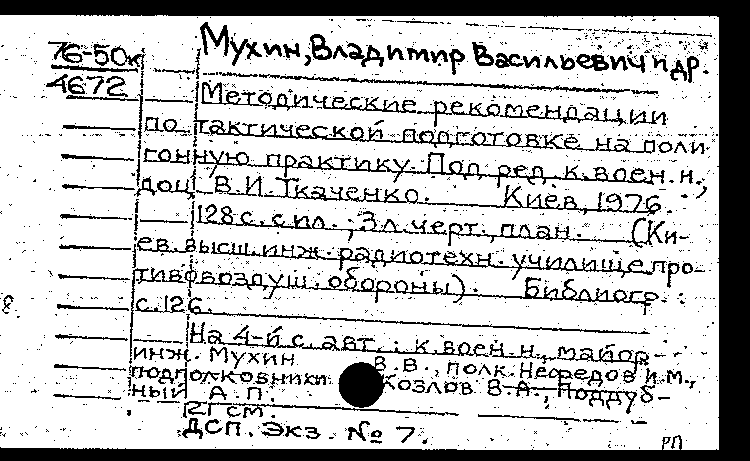 76-50к
4672
Мухин, Владимир Васильевич и др.
Методические рекомендации
по тактической подготовке на поли-
гонную практику. Под ред. к.воен.н.,
доц. В.И.Ткаченко. Киев, 1976.
128 с. с ил.; 3 л. черт., план. (Ки-
ев. высш. инж. радиотехн. училище про-
тивовоздуш. обороны). Библиогр.:
с. 126.
На 4-й с. авт.: к.воен.н., майор-
инж. Мухин В.В., полк. Нефедов И.М.,
подполковники Козлов В.А., Поддуб-
ный А.П.
21 см.
ДСП. Экз. № 7.
РП